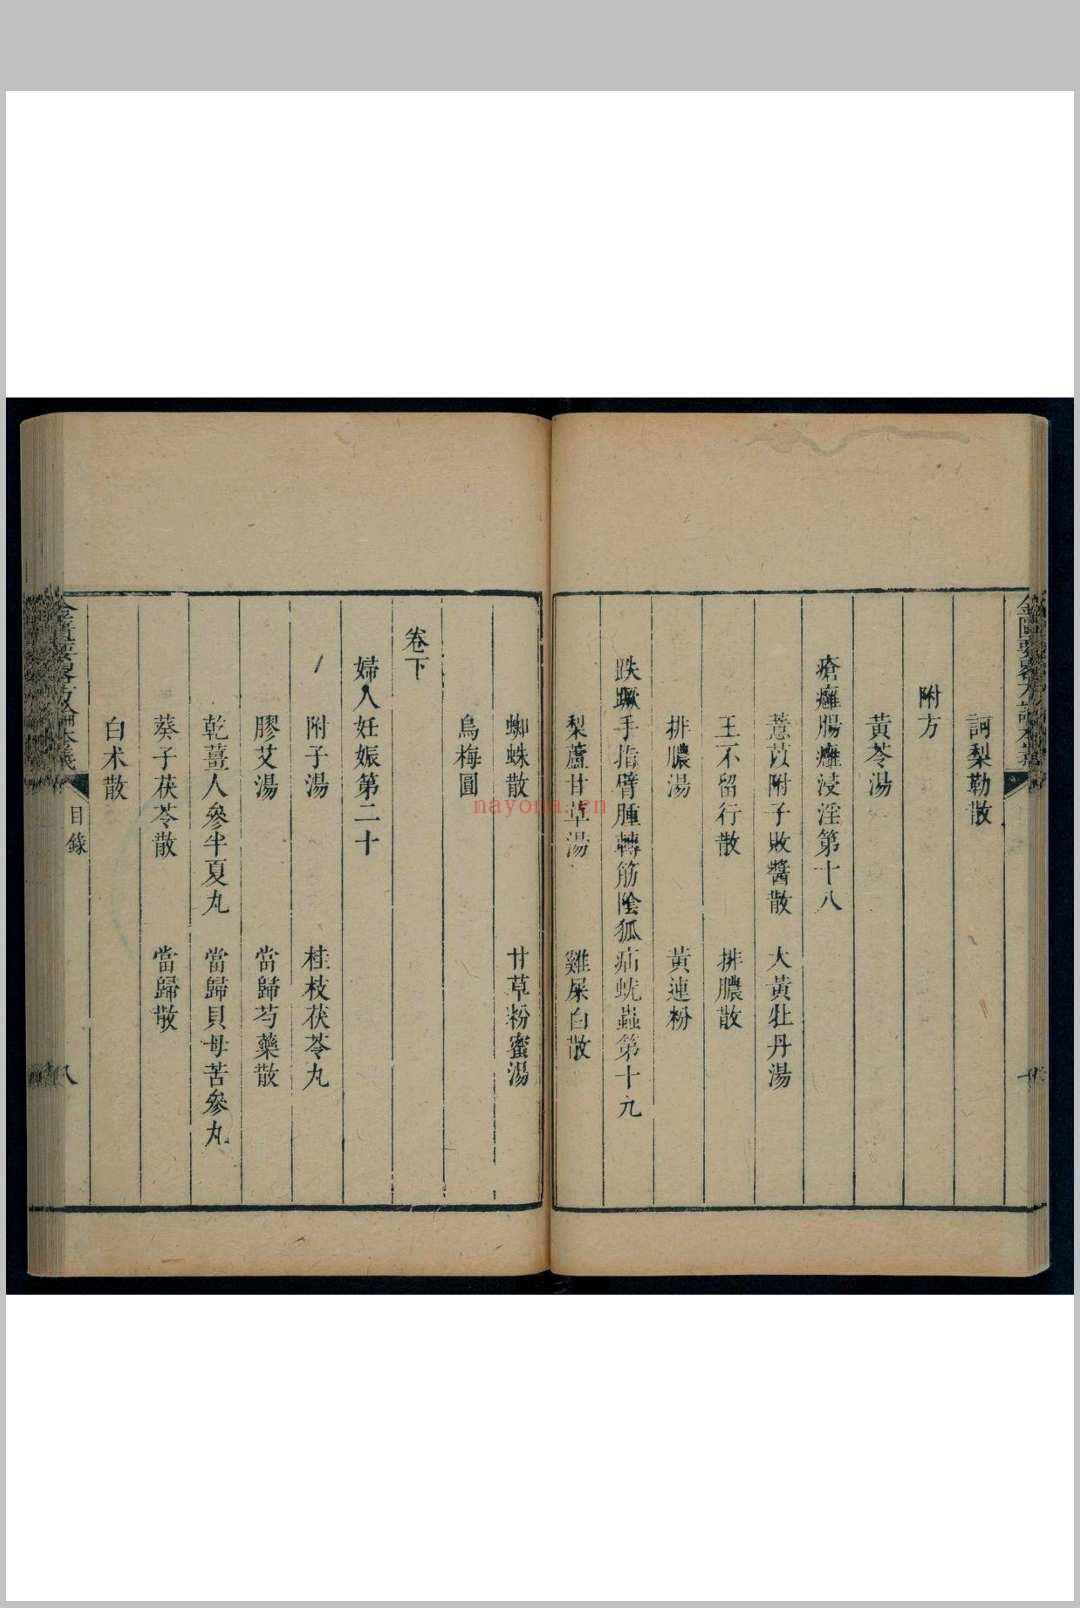 訶梨勒散
附方
黃芩湯
瘡癰腸癰浸淫第十八
薏苡附子敗醬散　大黃牡丹湯
王不留行散　排膿散
排膿湯　黃連粉
趺蹶手指臂腫轉筋陰狐疝蚘蟲第十九
梨蘆甘草湯　雞屎白散
蜘蛛散　甘草粉蜜湯
烏梅圓
卷下
婦人妊娠第二十
附子湯　桂枝茯苓丸
膠艾湯　當歸芍藥散
乾薑人參半夏丸　當歸貝母苦參丸
葵子茯苓散　當歸散
白术散
金匱要畧方論本義　目錄　八
nayona.cn